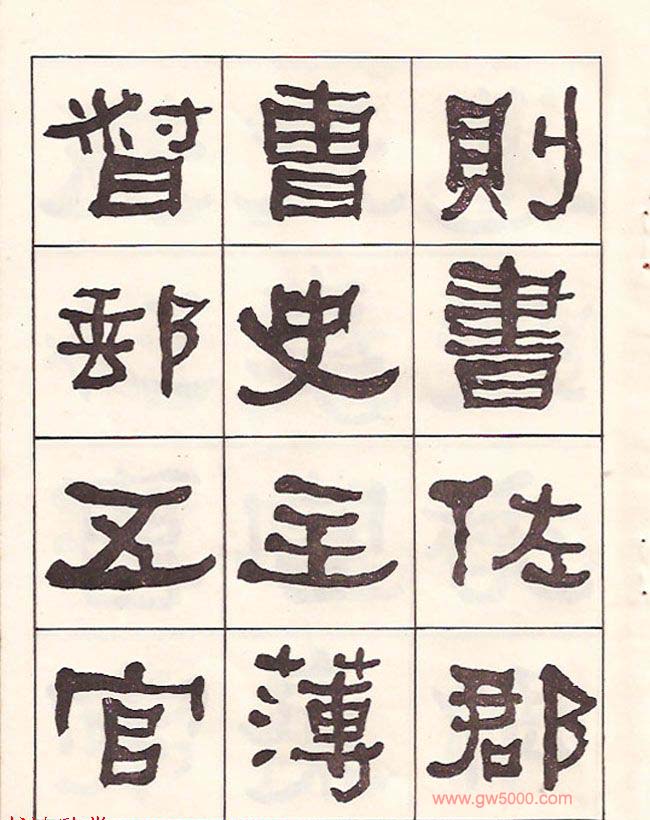 則書佐郡
曹史主薄
督郵五官
www.gw5000.com